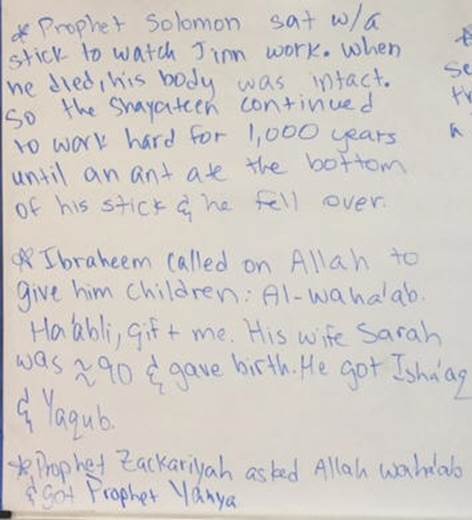 * Prophet Solomon sat w/a
stick to watch Jinn work. When
he died, his body was intact.
So the Shayateen continued
to work hard for 1,000 years
until an ant ate the bottom
of his stick & he fell over.
* Ibraheem called on Allah to
give him children: Al-waha'ab.
Ha'abli, gift me. His wife Sarah
was ≈90 & gave birth. He got Isha'aq
& Yaqub.
* Prophet Zackariyah asked Allah waha'ab
& got Prophet Yahya